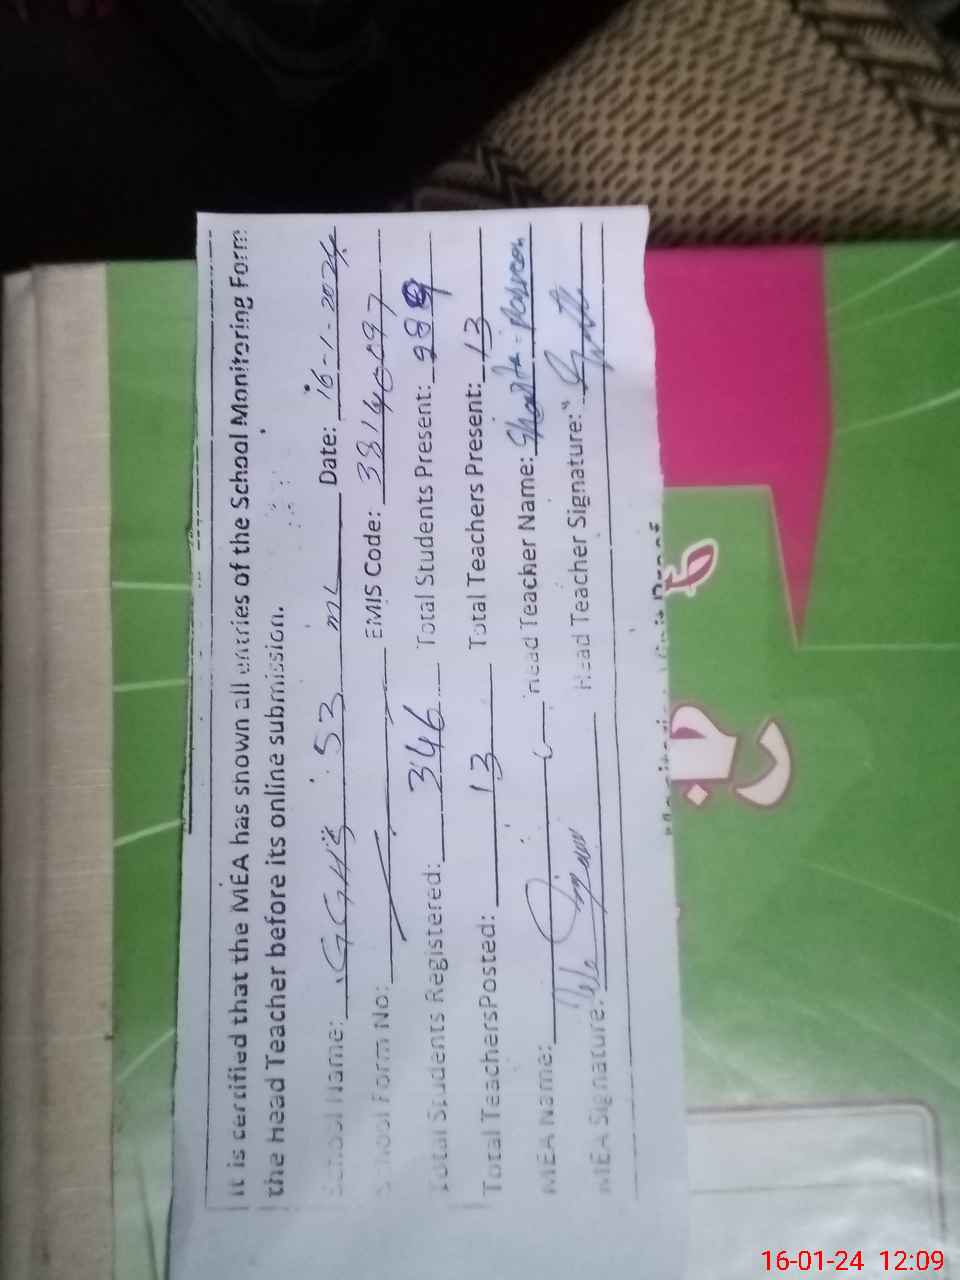 It is certified that the MEA has shown all entries of the School Monitoring Form
the Head Teacher before its online submission.
School Name: GGHS 53 ML Date: 16-1-2024
School Form No: EMIS Code: 38140097
Total Students Registered: 346 Total Students Present:
Total Teachers Posted: 13 Total Teachers Present: 13
MEA Name: Head Teacher Name:
MEA Signature: Head Teacher Signature:
16-01-24 12:09